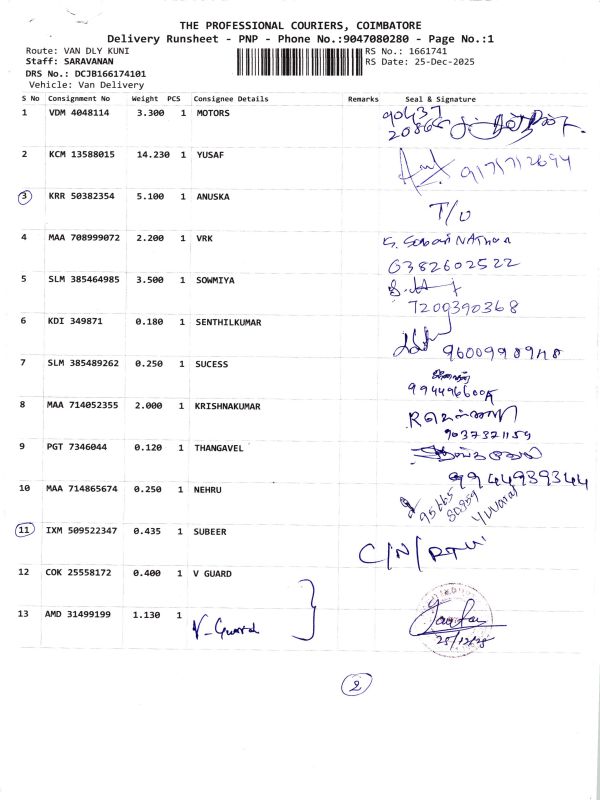 THE PROFESSIONAL COURIERS, COIMBATORE
Delivery Runsheet - PNP - Phone No.:9047080280 - Page No.:1
Route: VAN DLY KUNI RS No.: 1661741
Staff: SARAVANAN RS Date: 25-Dec-2025
DRS No.: DCJB166174101
Vehicle: Van Delivery
S No Consignment No Weight PCS Consignee Details Remarks Seal & Signature
1 VDM 4048114 3.300 1 MOTORS 90437
20866
2 KCM 13588015 14.230 1 YUSAF
3 KRR 50382354 5.100 1 ANUSKA
T/O
4 MAA 708999072 2.200 1 VRK
6382602522
5 SLM 385464985 3.500 1 SOWMIYA
7200390368
6 KDI 349871 0.180 1 SENTHILKUMAR
7 SLM 385489262 0.250 1 SUCESS
8 MAA 714052355 2.000 1 KRISHNAKUMAR
9037371159
9 PGT 7346044 0.120 1 THANGAVEL
9944939344
10 MAA 714865674 0.250 1 NEHRU
95665
80959
Yuvaraj
11 IXM 509522347 0.435 1 SUBEER
C/N/RTN
12 COK 25558172 0.400 1 V GUARD
13 AMD 31499199 1.130 1
V-Guard
25/12/25
2